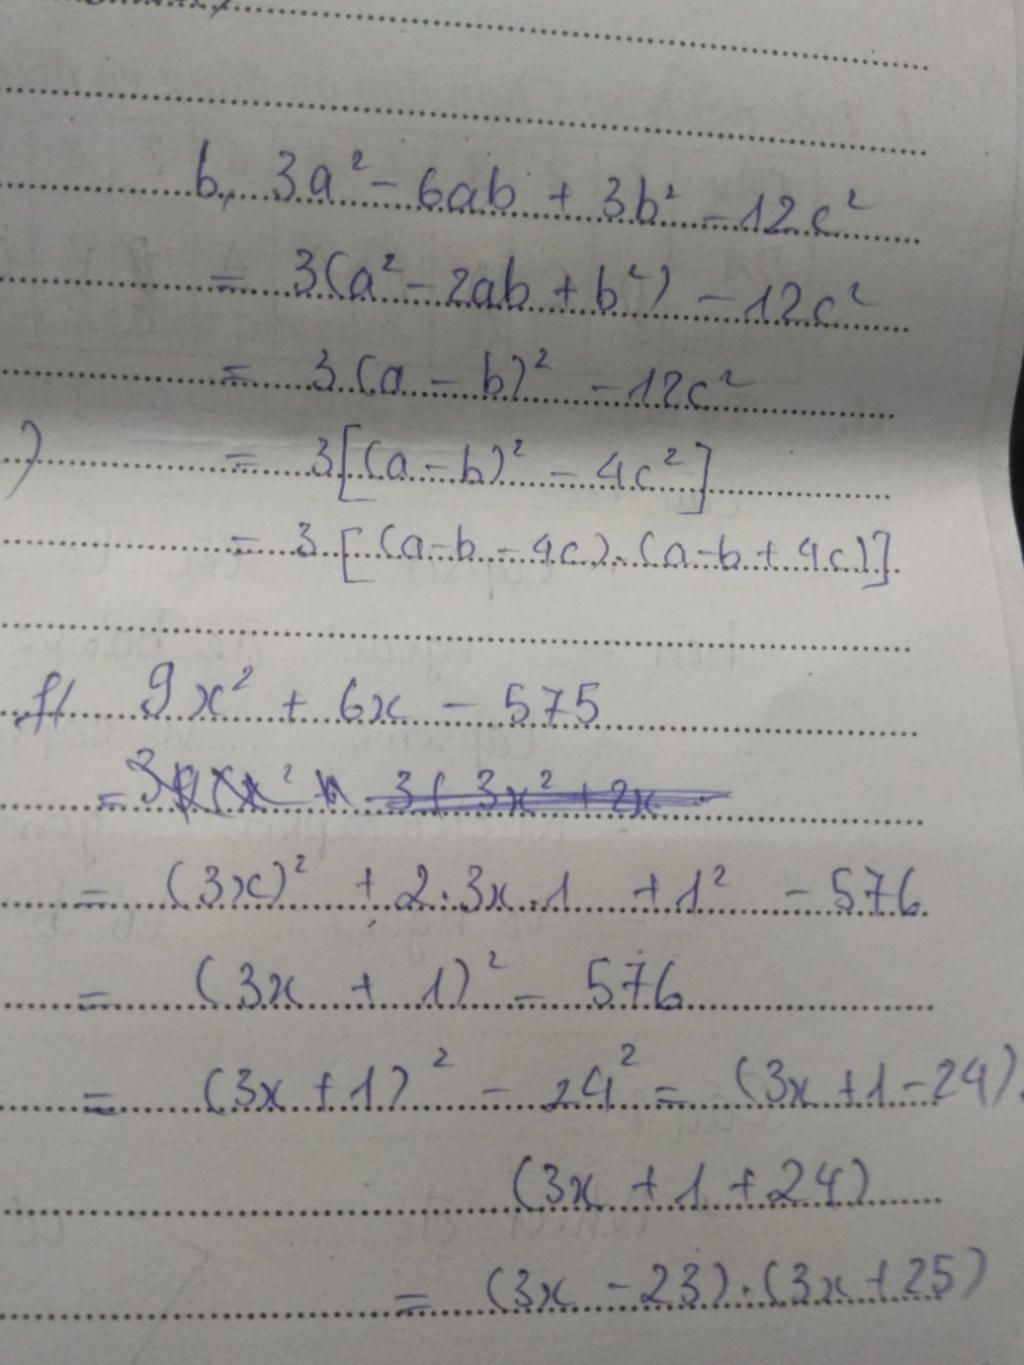 b, 3a² - 6ab + 3b² - 12c²
= 3(a² - 2ab + b²) - 12c²
= 3(a - b)² - 12c²
)
= 3[(a - b)² - 4c²]
= 3.[(a-b-4c).(a-b+4c)].
f/ 9x² + 6x - 575
= 3( 3x² + 2x
= (3x)² + 2.3x.1 + 1² - 576
= (3x + 1)² - 576
= (3x + 1)² - 24² = (3x + 1 - 24).
(3x + 1 + 24)
= (3x - 23).(3x + 25)